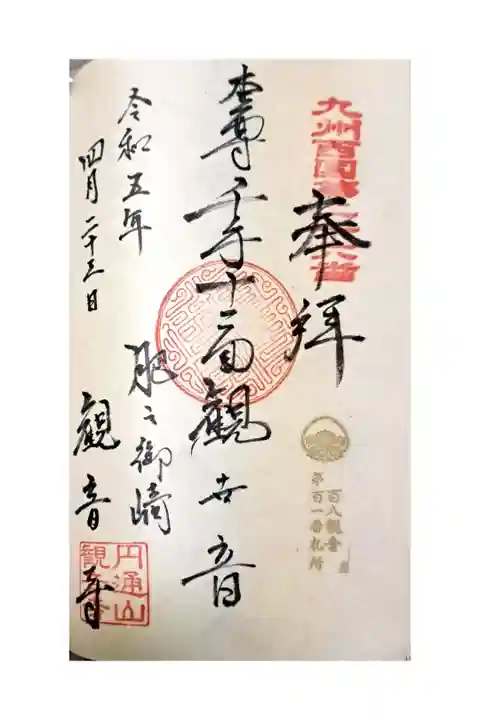 九州西国
奉拝
百八観音
第百一番札所
本尊千手十一面観世音
肥之御崎
観音寺
令和五年
四月二十三日
円通山
観音寺